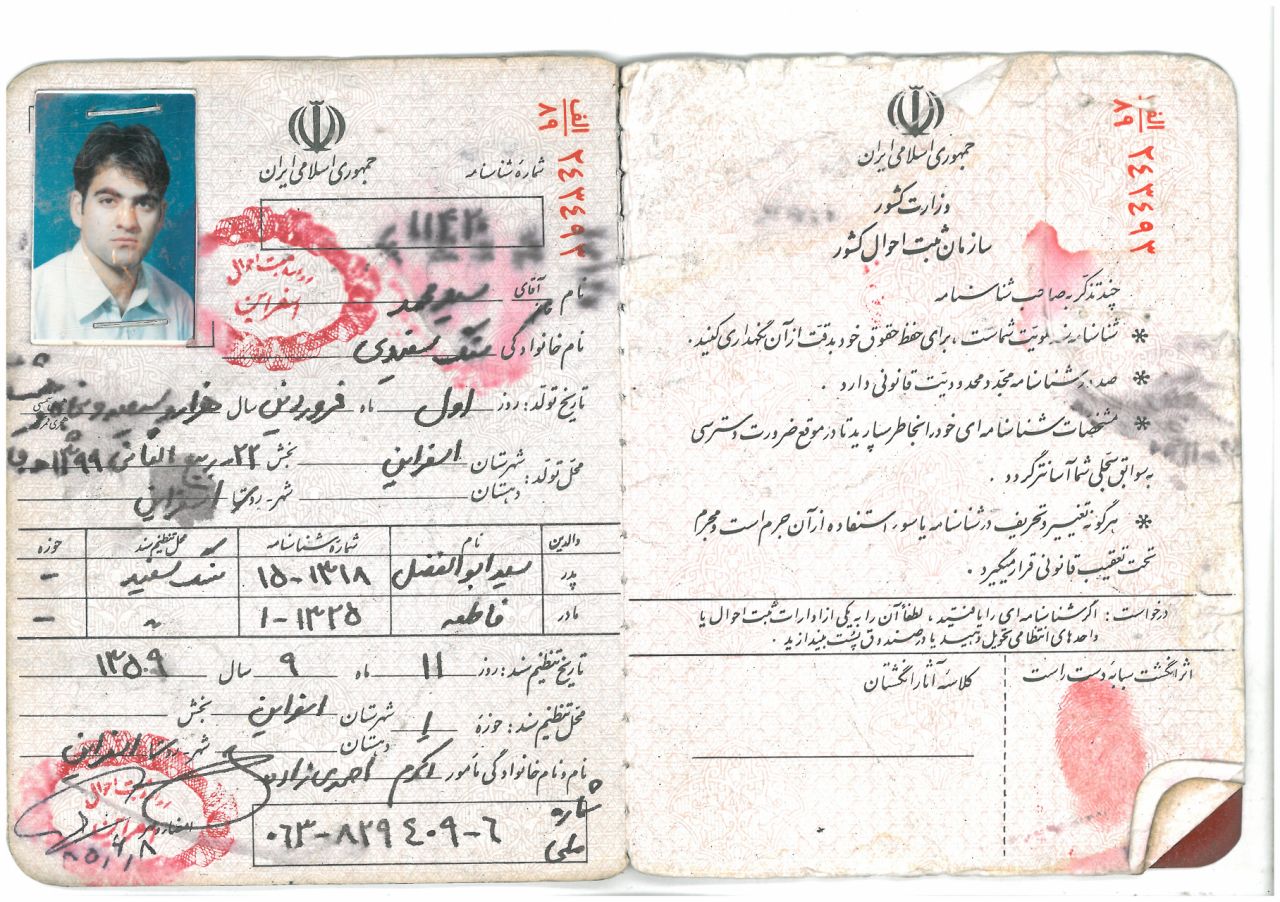 الف
۸۹
۲۴۳۴۹۳
جمهوری اسلامی ایران
شماره شناسنامه
نام آقای سید محمد
نام خانوادگی سفیدی
تاریخ تولد: روز اول ماه فروردین سال هزار و سیصد و پنجاه و
محل تولد: شهرستان اسفراین بخش ۲۲ ربیع الثانی ۱۳۹۹
دهستان شهر-روستا اسفراین
والدین نام شماره شناسنامه محل تنظیم سند حوزه
پدر سید ابوالفضل ۱۳۱۸-۱۵ سنگ سفید -
مادر فاطمه ۱۳۲۵-۱ " -
تاریخ تنظیم سند: روز ۱۱ ماه ۹ سال ۱۳۵۰۹
محل تنظیم سند: حوزه ۱ شهرستان اسفراین بخش
دهستان شهر-روستا اسفراین
نام و نام خانوادگی مأمور اکرم احمدی زاده
شماره ملی ۰۶۳-۸۲۹۴۰۹-۶
اداره ثبت احوال
اسفراین
الف
۸۹
۲۴۳۴۹۳
جمهوری اسلامی ایران
وزارت کشور
سازمان ثبت احوال کشور
چند تذکر به صاحب شناسنامه
* شناسنامه سند هویت شماست ، برای حفظ حقوق خود بدقت از آن نگهداری کنید .
* صدور شناسنامه مجدد محدودیت قانونی دارد .
* مشخصات شناسنامه ای خود را بخاطر بسپارید تا در موقع ضرورت دسترسی
به سوابق سجلی شما آسانتر گردد .
* هرگونه تغییر و تحریف در شناسنامه یا سوء استفاده از آن جرم است و مجرم
تحت تعقیب قانونی قرار میگیرد .
درخواست : اگر شناسنامه ای را یافتید ، لطفاً آن را به یکی از ادارات ثبت احوال یا
واحدهای انتظامی تحویل دهید یا در صندوق پست بیندازید .
اثر انگشت سبابه دست راست
کلاسه آثار انگشتان